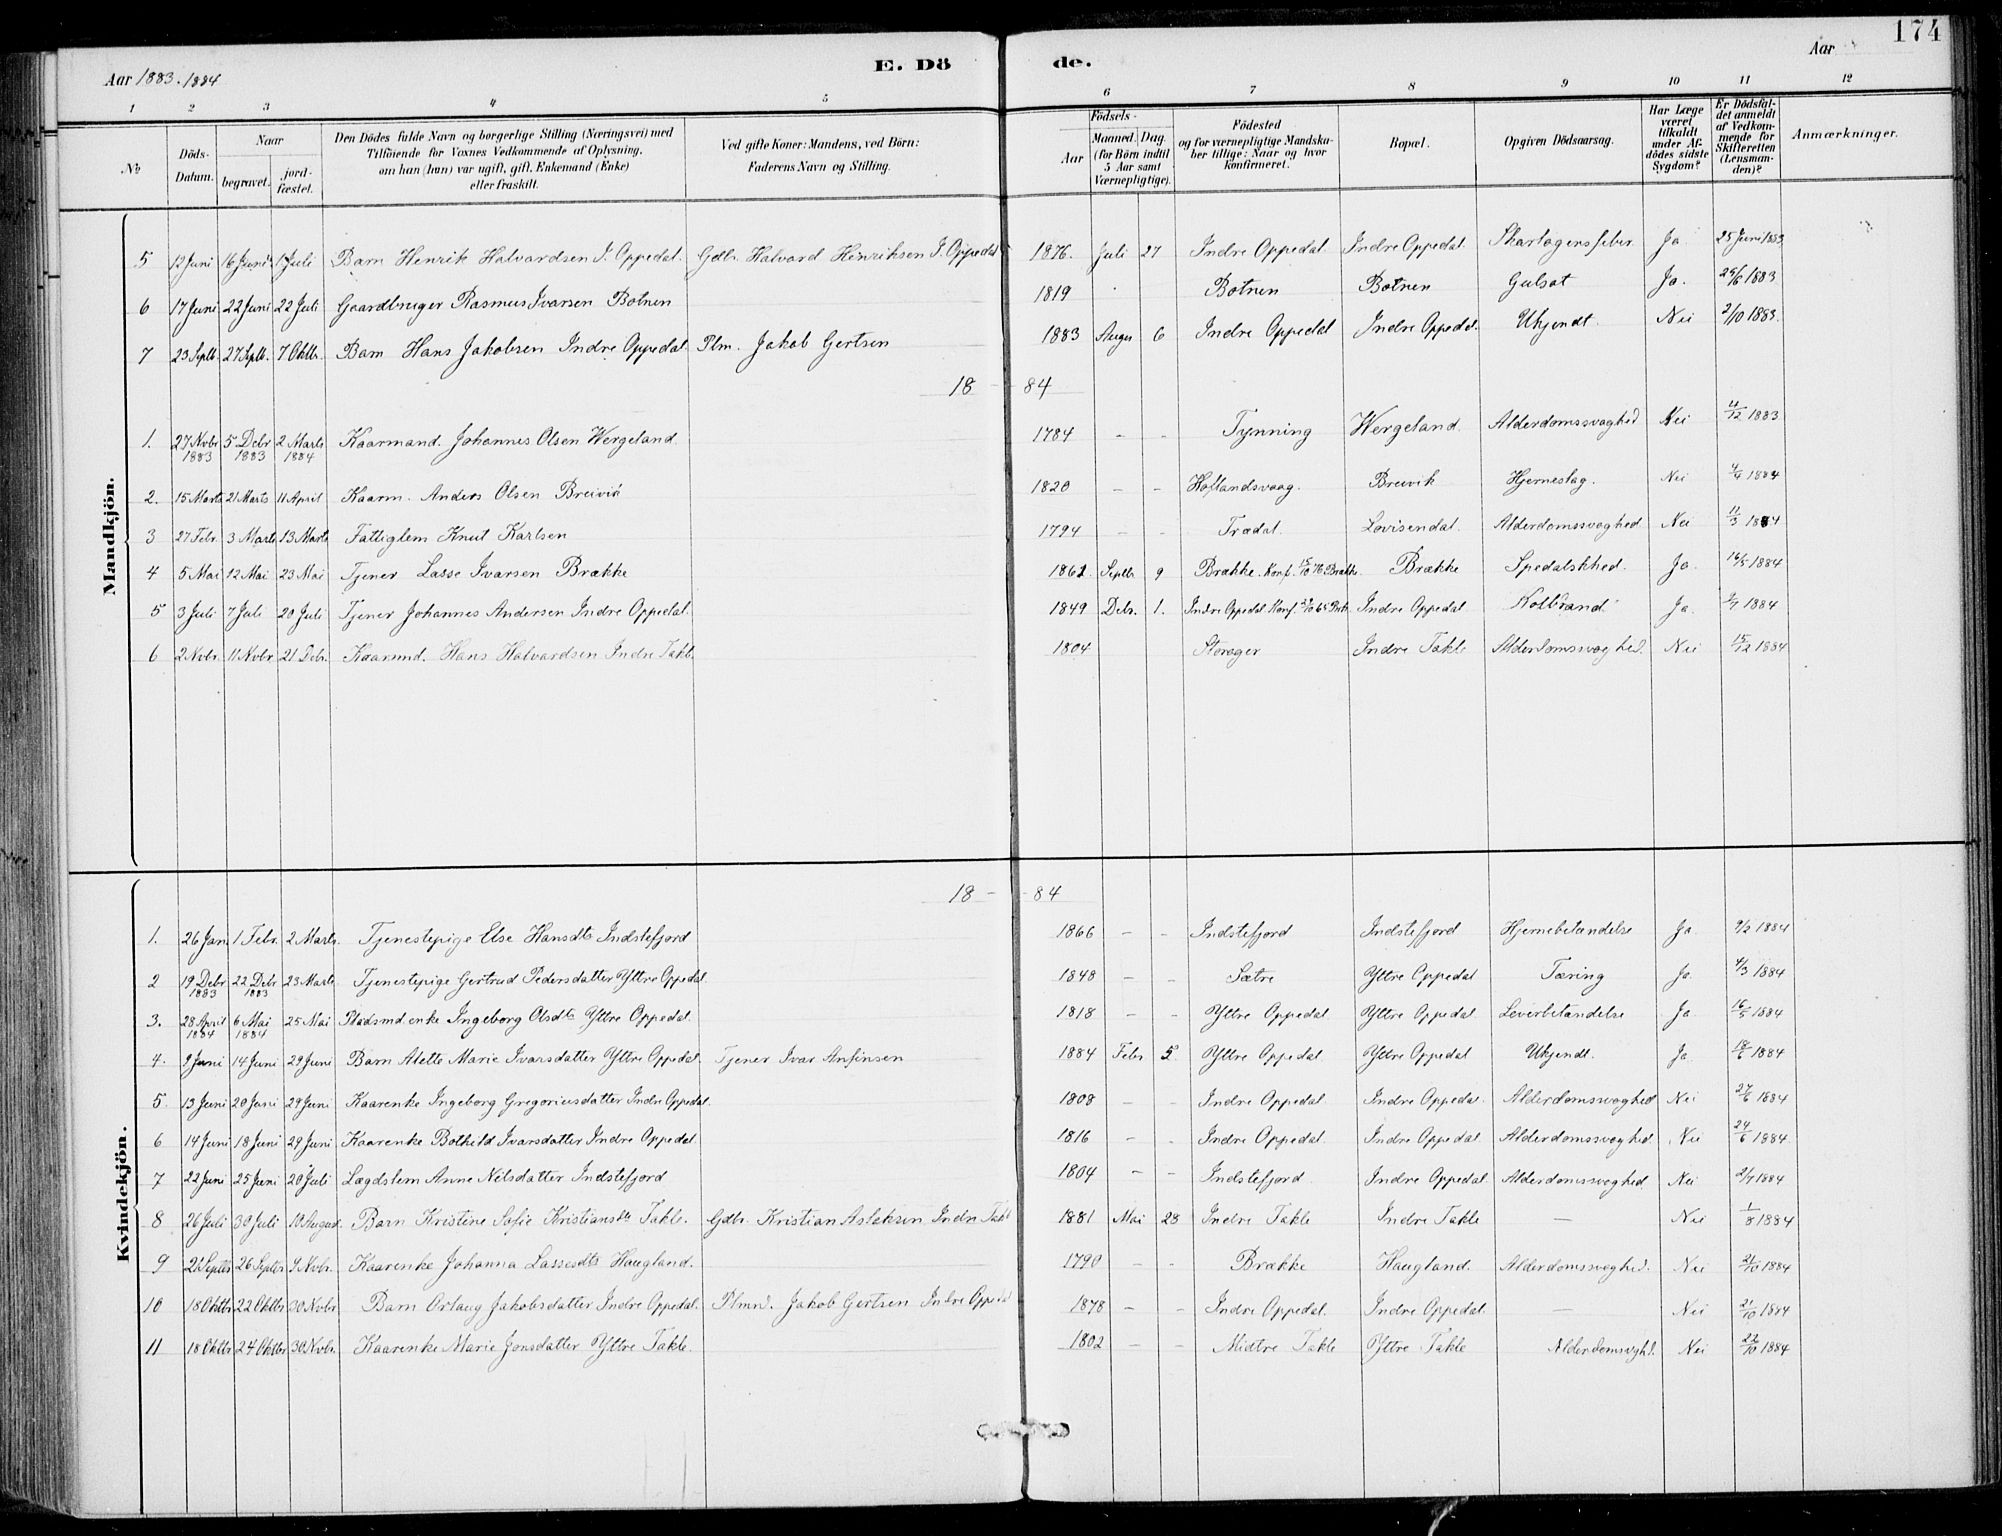 174
Aar 1883. 1884
E. Dö de.
Aar
1 2 3 4 5 6 7 8 9 10 11 12
№
Döds-Datum.
Naar
begravet.
jord-fæstet.
Den Dödes fulde Navn og borgerlige Stilling (Næringsvei) med
Tilföiende for Voxnes Vedkommende af Oplysning,
om han (hun) var ugift, gift, Enkemand (Enke)
eller fraskilt.
Ved gifte Koner: Mandens, ved Börn:
Faderens Navn og Stilling.
Födsels-
Aar
Maaned. Dag.
(for Börn indtil
5 Aar samt
Værnepligtige).
Födested
og for værnepligtige Mandska-
ber tillige: Naar og hvor
konfirmeret.
Bopæl.
Opgiven Dödsaarsag.
Har Læge
været
tilkaldt
under Af-
dödes sidste
Sygdom?
Er Dödsfal-
det anmeldt
af Vedkom-
mende for
Skifteretten
(Lensman-
den)?
Anmærkninger.
Mandkjön.
5 12 Juni 16 Juni 1 Juli Barn Henrik Halvardsen I. Oppedal. Gdbr. Halvard Henriksen I. Oppedal 1876. Juli 27 Indre Oppedal Indre Oppedal. Skarlagensfeber Ja 25 Juni 1883
6 17 Juni 22 Juni 22 Juli Gaardbruger Rasmus Ivarsen Botnen 1819 Botnen Botnen Gulsot Ja. 29/6 1883
7 23 Septb. 27 Septb. 7 Oktbr. Barn Hans Jakobsen Indre Oppedal Plm. Jakob Gertsen 1883 Augus 6 Indre Oppedal Indre Oppedal. Ukjendt. Nei 2/10 1883.
18 - 84
1. 27 Novbr 1883 5 Debr 1883 2 Marts 1884 Kaarmand. Johannes Olsen Wergeland 1784 - - Tynning Wergeland. Alderdomssvaghed Nei 4/12 1883
2. 15 Marts 21 Marts 11 April Kaarm. Anders Olsen Breivik 1820 - - Hoflandsvaag. Breivik Hjerneslag. Nei 4/4 1884
3 27 Febr. 3 Marts 13 Marts Fattiglem Knut Karlsen 1794 - - Trædal. Lovisendal. Alderdomssvaghed Nei 11/3 1884
4 5 Mai 12 Mai 23 Mai Tjener Lasse Ivarsen Brække 1861 Septb. 9 Brække. Konf. 15/10 76 Brække. Brække Spedalskhed. Ja. 16/5 1884
5 3 Juli 7 Juli 20 Juli Tjener Johannes Andersen Indre Oppedal. 1849 Debr. 1. Indre Oppedal Konf. Indre Oppedal Kolbrand Ja. 9/7 1884
6 2 Novbr. 11 Novbr 21 Debr. Kaarmd. Hans Halvardsen Indre Takle 1804 Storager Indre Takle Alderdomssvaghed. Nei 15/12 1884
Kvindekjön.
18 - 84
1. 26 Jan. 1 Febr. 2 Marts. Tjenestepige Else Hansdtr Indstefjord 1866 - - Indstefjord Indstefjord Hjernebetændelse Ja 9/2 1884
2 19 Debr 1883 22 Debr 1883 23 Marts. Tjenestepige Gertrud Pedersdatter Yttre Oppedal. 1848 - - Sætre Yttre Oppedal Tæring Ja. 4/3 1884
3. 28 April 1884 6 Mai 1884 25 Mai Pladsmd.enke Ingeborg Olsdtr Yttre Oppedal. 1818 - - Yttre Oppedal Yttre Oppedal Leverbetændelse Ja 16/5 1884
4. 9 Juni 14 Juni 29 Juni Barn Alette Marie Ivarsdatter Yttre Oppedal. Tjener Ivar Anfinsen 1884 Febr 5. Yttre Oppedal Yttre Oppedal Ukjendt. Ja 18/6 1884
5. 13 Juni 20 Juni 29 Juni Kaarenke Ingeborg Gregoriusdatter Indre Oppedal. 1808 - - Indre Oppedal Indre Oppedal. Alderdomssvaghed Nei 27/6 1884
6 14 Juni 18 Juni 29 Juni Kaarenke Bothild Ivarsdatter Indre Oppedal. 1816 - - Indre Oppedal. Indre Oppedal. Alderdomssvaghed. Nei 24/6 1884.
7 22 Juni 25 Juni 20 Juli Lægdslem Anne Nilsdatter Indstefjord 1804 - - Indstefjord. Indre Oppedal. Alderdomssvaghed Nei 2/7 1884
8 26 Juli 30 Juli 10 August. Barn Kristine Sofie Kristiansdtr Takle. Gdbr. Kristian Aslaksen Indre Takl 1881 Mai 28 Indre Takle Indre Takle - Nei 1/8 1884
9 21 Septbr 26 Septbr 9 Novbr. Kaarenke Johanna Lassesdtr Haugland. 1790 - - Brække Haugland. Alderdomssvaghed. Nei 2/10 1884
10 18 Oktbr 22 Oktbr 30 Novbr. Barn Orlaug Jakobsdatter Indre Oppedal. Plmnd. Jakob Gertsen Indre Oppedal 1878 - - Indre Oppedal. Indre Oppedal. - Nei 21/10 1884
11 18 Oktbr 24 Oktbr 30 Novbr. Kaarenke Marie Jonsdatter Yttre Takle. 1802 - - Midtre Takle Yttre Takle Alderdomsvgh. Nei 22/10 1884